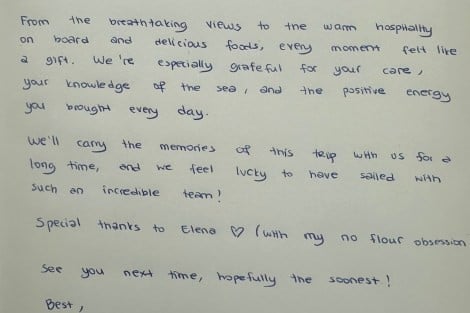 From the breathtaking views to the warm hospitality
on board and delicious foods, every moment felt like
a gift. We're especially grateful for your care,
your knowledge of the sea, and the positive energy
you brought every day.
We'll carry the memories of this trip with us for a
long time, and we feel lucky to have sailed with
such an incredible team!
Special thanks to Elena ♡ (with my no flour obsession
See you next time, hopefully the soonest!
Best,